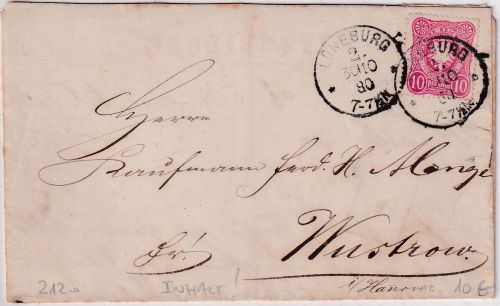 LÜNEBURG
30 10
80
7-7½N
LÜNEBURG
10
80
7-7½N
10 10
Herrn
Kaufmann Ferd. H. Menge
fr!
Wustrow
i/Hanover
212
INHALT!
10 €